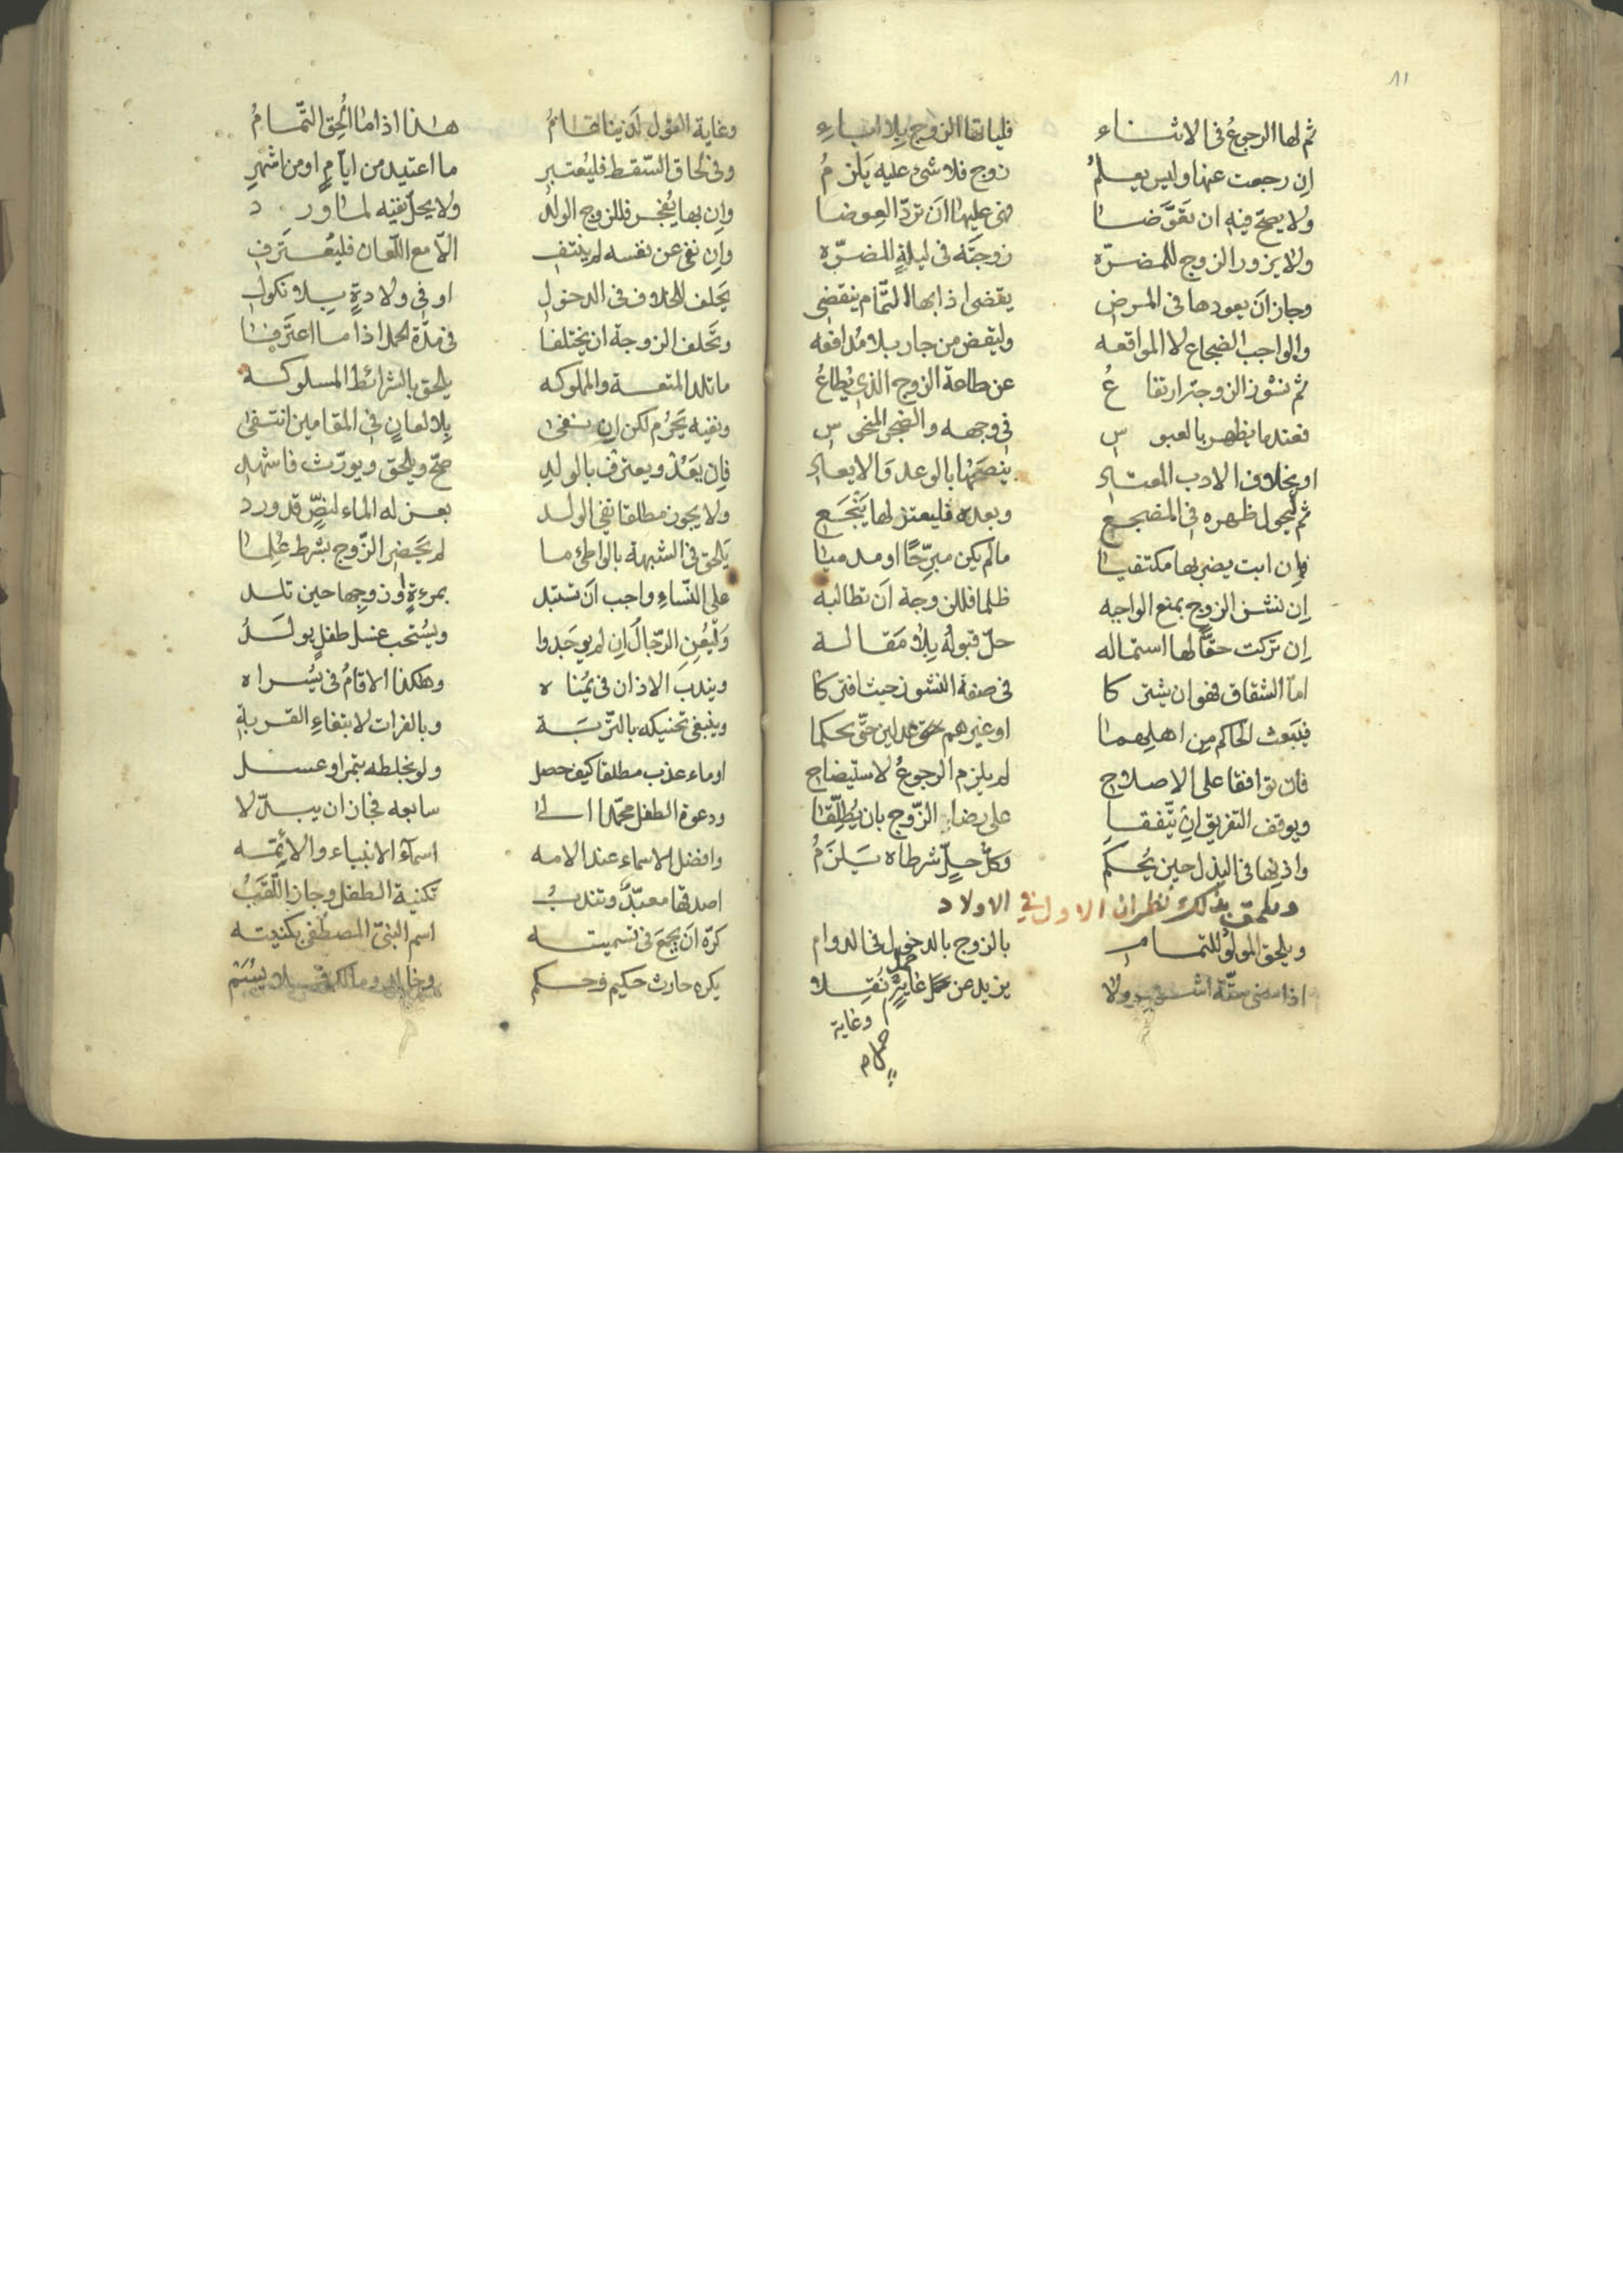 ١١
ثم لها الرجوعُ فى الاثناء فلياتها الزوج بِلا اباءِ
اِن رجعت عنها وليس يعلمُ زوج فلا شئ عليه يَلزمُ
ولا يصحّ فيه ان تعوَّضا فى عليها اَن تردّ العِوضا
ولا يزور الزوج للمضرّه زوجتَه فى ليلةٍ للضرّه
وجاز اَن يعودها فى المرض يقضى اذا بها التمام ينقضى
والواجب الضجاع لا المواقعه وليقض من جار بلا مُدافعه
ثم نشوز الزوجة ارتفاعُ عن طاعة الزوج الذى يُطاعُ
فعندما يظهر بالعبوس فى وجهه والضجر المنحوس
او بخلاف الادب المعتادِ ينصَحُها بالوعد وَالايعادِ
ثم ليحول ظهره فى المضجع وبعده فليعتزلها يَنْجَع
فاِن ابت يضربها مكتفيا مالم يكن مبرِّحًا او مدميا
اِن نشز الزوج بمنع الواجبه ظلما فللزوجة اَن تطالبه
اِن تركت حقًّا لها استماله حلّ قبوله بِلا مَقاله
امّا الشقاق فهو ان يشتركا فى صفة النشوز حيث افتركا
فيَبعث الحاكم مِن اهلِهِما او غيرهم عدلين حتّى يحكما
فان توافقا على الاصلاح لم يلزم الرجوعُ لاستيضاح
ويوقف التفريق اِن يتّفقا على رضاء الزّوج بان يُطلِّقا
واذنِها فى البذل حين يُحكَم وَكلّ حِلٍّ شرطاه يَلزَمُ
ويلحق بذلك نظران الاول فى الاولاد
ويلحق المولو للتمام بالزوج بالدخول فى الدوام
اذا مضى ستّة اشهر ولا يزيد عن حمل غايةٍ نُقِلا
وغاية
وغاية الحمل لدينا عامُ هذا اذا ما اُلحِق التّمامُ
وفى لحاق السّقط فليُعتبرِ ما اعتيد من ايّامٍ او من اشهرِ
واِن بها يُفجر فللزوج الولدُ ولا يحلّ نفيه لما ورد
واِن نفى عن نفسه لم ينتفِ الاّ مع اللّعان فليُعتَرفِ
يَحلف للخلاف فى الدخول او فى ولادةٍ بِلا نكول
وتَحلف الزوجة ان يختلفا فى مدّة الحمل اذا ما اعترفا
ما تلد المتعة والمملوكه يلحق بالشرائط المسلوكه
ونفيه يَحرُم لكن اِن نفى بِلا لعانٍ فى المقامين انتفى
فاِن يَعُدْ ويعترف بالولدِ صحّ ويلحق ويورّث فاشهدِ
ولا يجوز مطلقا نفى الولد بعزله الماء لنصٍّ قد ورد
يَلحق فى الشبهة بالواطئ ما لم يَحضرِ الزّوج بشرط عُلِما
على النّساءِ واجب اَن تستبد بمرءةٍ اَو زوجها حين تلد
وَلْيُعِنِ الرّجالُ اِن لم يوجَدوا ويُستحب غسل طفلٍ يولَدُ
ويندب الاذان فى يُمناه وهكذا الاقامُ فى يُسراه
وينبغى تحنيكه بالتّربَة وبالفرات لابتغاءِ القربةِ
او ماء عذب مطلقا كيف حصل ولو بخلطه بتمر او عسل
ودعوة الطفل محمّدا الى سابعه فجاز ان يبدّلا
وافضل الاسماء عند الامه اسماءُ الانبياء والائمّه
اصدقها معبّدٌ وتندبُ تكنية الطفل وجاز اللّقَبُ
كرّه اَن يجمعَ فى تسميته اسم النبىّ المصطفى بكنيته
يكره حارث حكيم وحكم وخالد ومالك